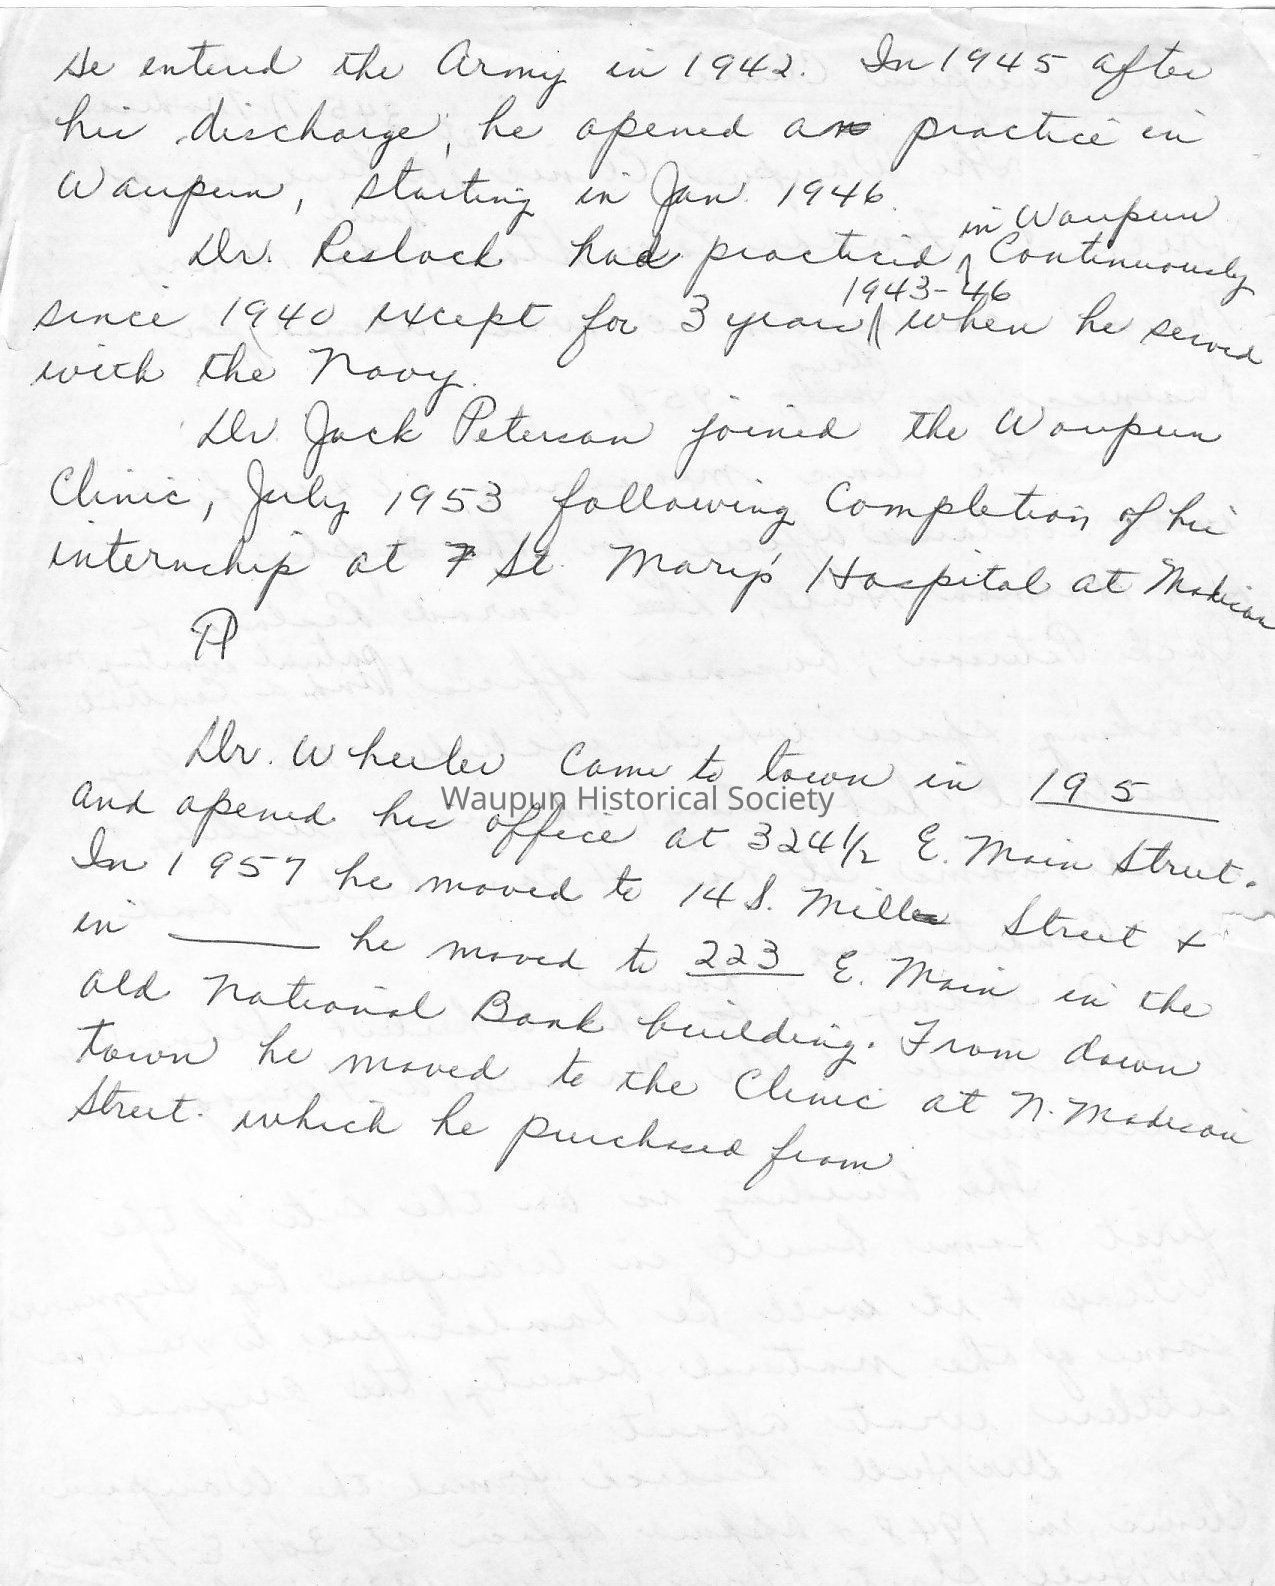 He entered the Army in 1942. In 1945 after
his discharge, he opened a practice in
Waupun, starting in Jan. 1946.
Dr. Reslock had practiced in Waupun Continuously
since 1940 except for 3 years 1943-46 when he served
with the Navy.
Dr. Jack Peterson joined the Waupun
Clinic, July 1953 following Completion of his
internship at St. Mary's Hospital at Madison
Dr. Wheeler Came to town in 195
and opened his office at 324 1/2 E. Main Street.
In 1957 he moved to 14 S. Mill Street &
in ____ he moved to 223 E. Main in the
old National Bank building. From down
town he moved to the Clinic at N. Madison
Street. which he purchased from
Waupun Historical Society